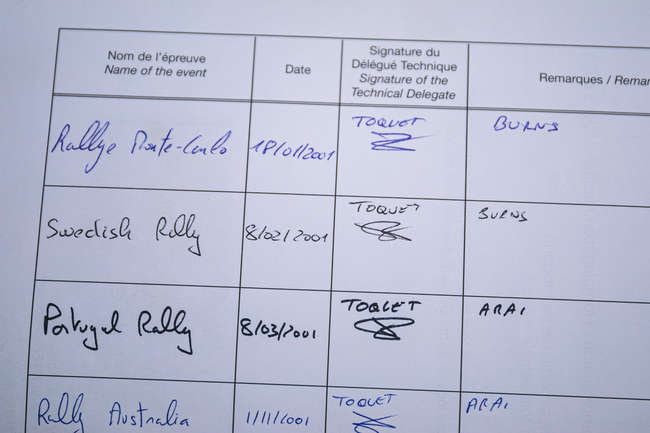 Nom de l'épreuve
Name of the event
Date
Signature du
Délégué Technique
Signature of the
Technical Delegate
Remarques / Remar
Rallye Monte-Carlo
18/01/2001
TOQUET
BURNS
Swedish Rally
8/02/2001
TOQUET
BURNS
Portugal Rally
8/03/2001
TOQUET
ARAI
Rally Australia
1/11/2001
TOQUET
ARAI